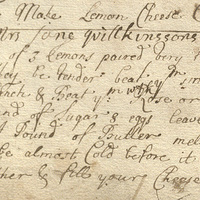 Make Lemon Cheese
Mrs Jane Quilkinssons
of 3 Lemons paired very
they be tender beat ym
& Beat ym wth Rose or
nd of Sugar & eggs leave
Pound of Butter
be almost Cold before it
& fill your Cheese